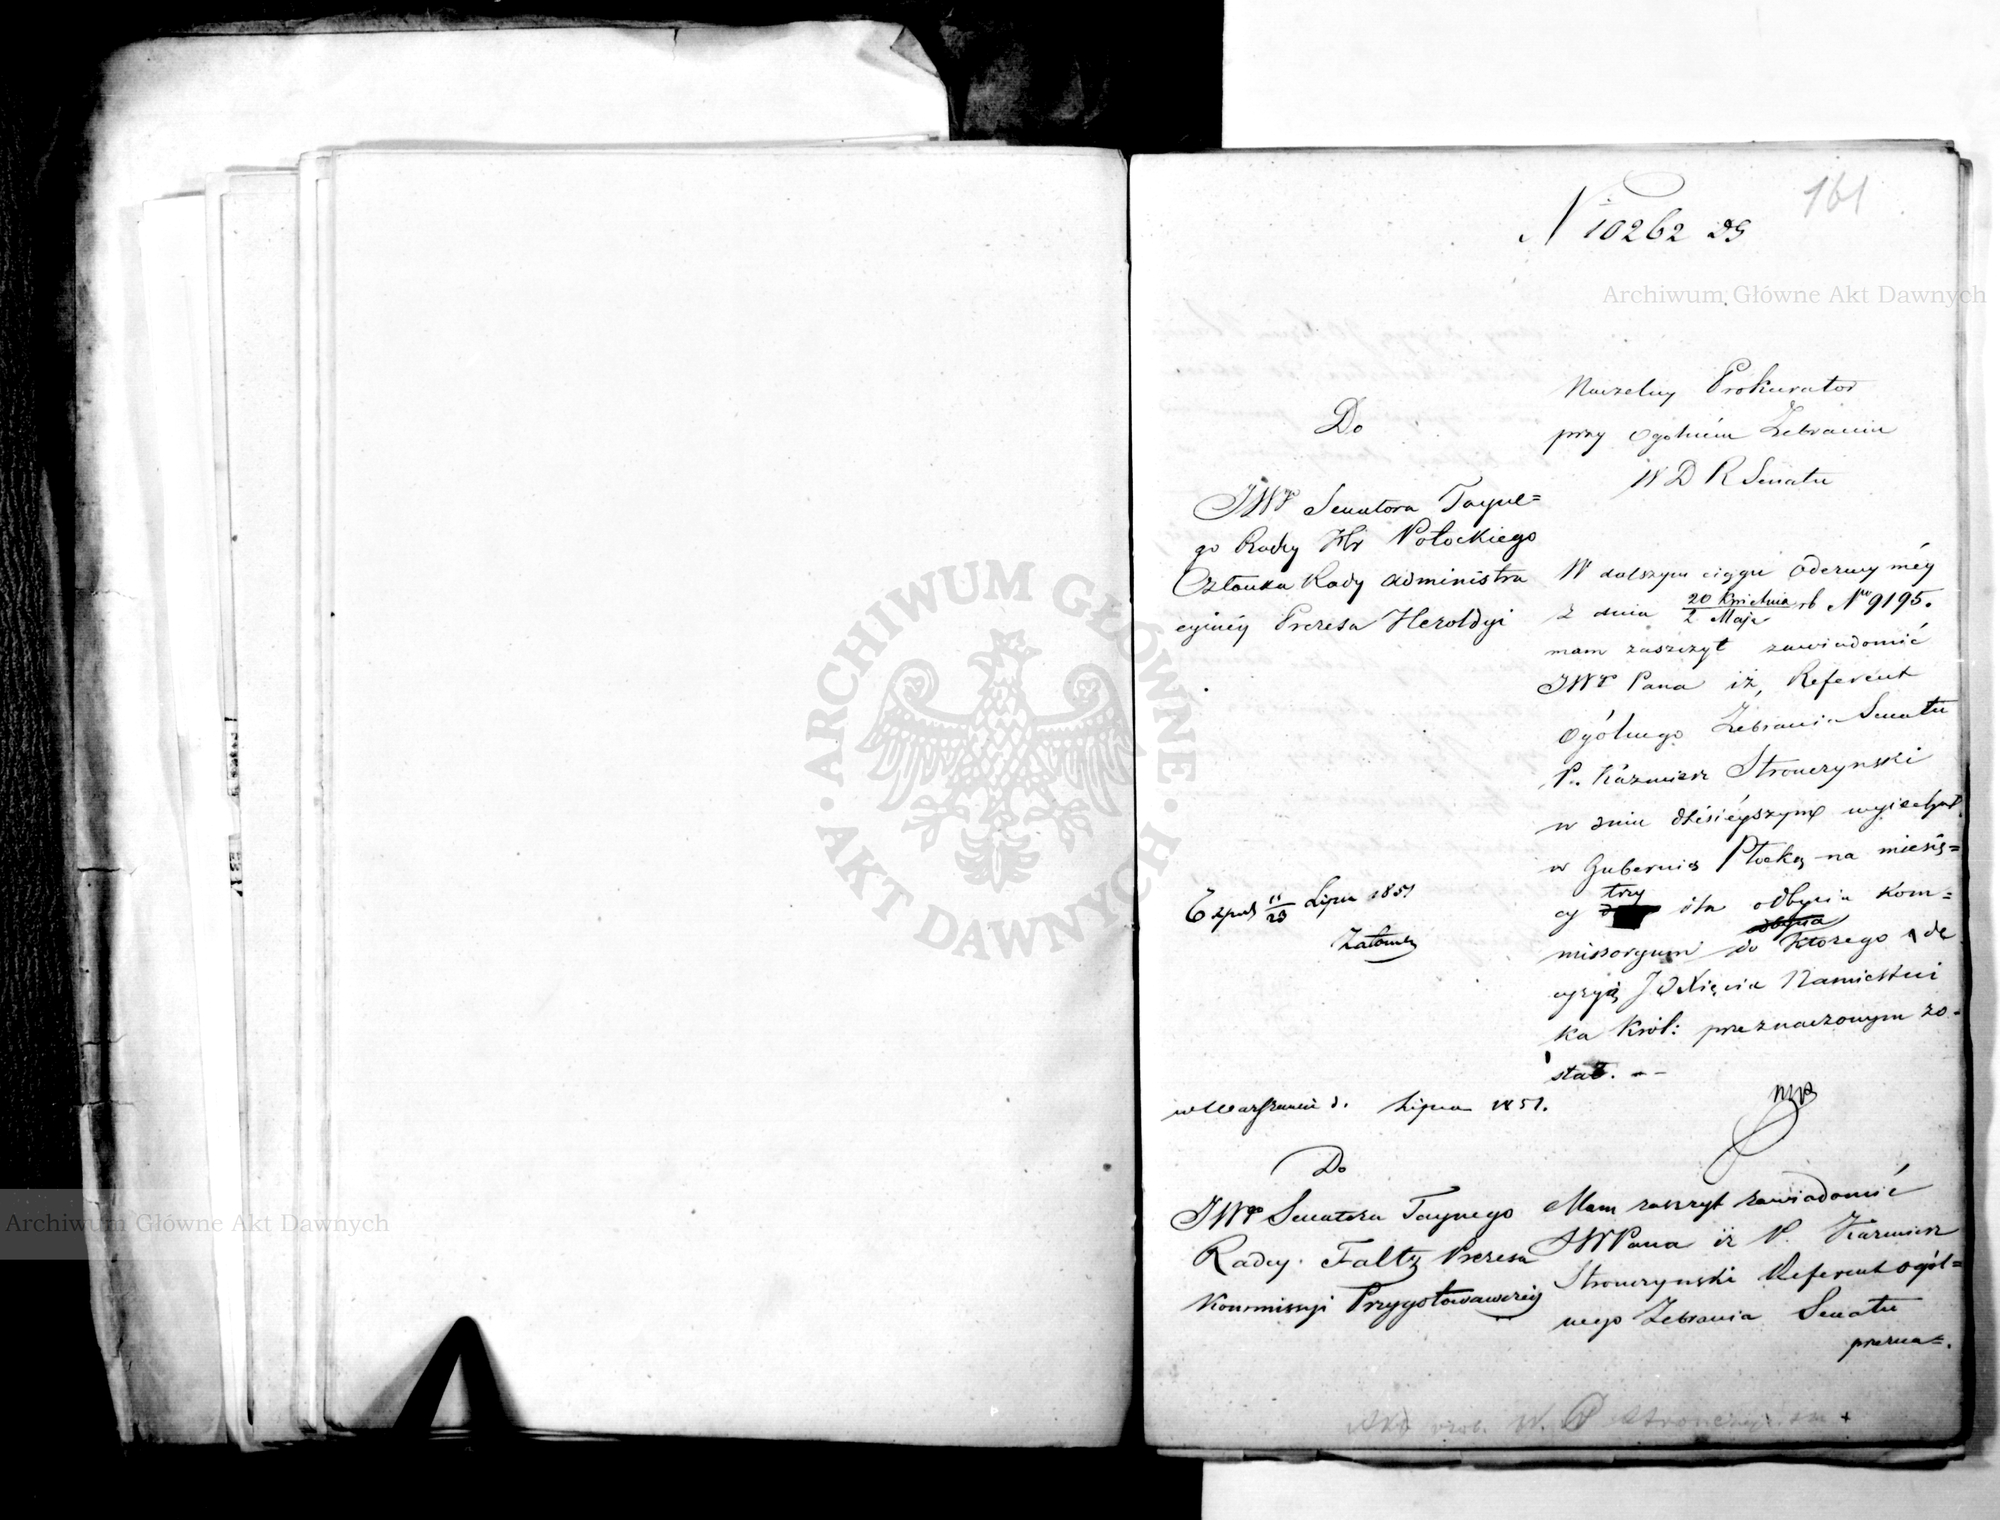 161
N 10262 DG
Archiwum Główne Akt Dawnych
Naczelny Prokurator
przy Ogólném Zebraniu
W D R Senatu
Do
JWº Senatora Tayne=
go Radcy Hr Potockiego
Członka Rady Administra
cyinéy Prezesa Heroldyi
W dalszym ciągu Odezwy méy
z dnia 20 Kwietnia / 2 Maja rb Nro 9195.
mam zaszczyt zawiadomić
JWº Pana iż, Referent
Ogólnego Zebrania Senatu
P. Kazimierz Stronczynski
w dniu dzisiéyszym wyiechał
w Gubernią Płocką na miesię=
cy trzy dla odbycia Kom=
missoryum do którego de
cyzyą JO Xięcia Namiestni
ka Król: przeznaczonym zo-
stał. --
Exped 11/23 Lipca 1851
w Warszawie d. Lipca 1851.
Do
JWº Senatora Taynego
Radcy Faltz Prezesa
Kommissyi Przygotowawczéy
Mam zaszczyt zawiadomić
JWPana iż P. Kazimierz
Stronczynski Referent Ogól=
nego Zebrania Senatu
przezna=.
ARCHIWUM GŁÓWNE
AKT DAWNYCH
Archiwum Główne Akt Dawnych